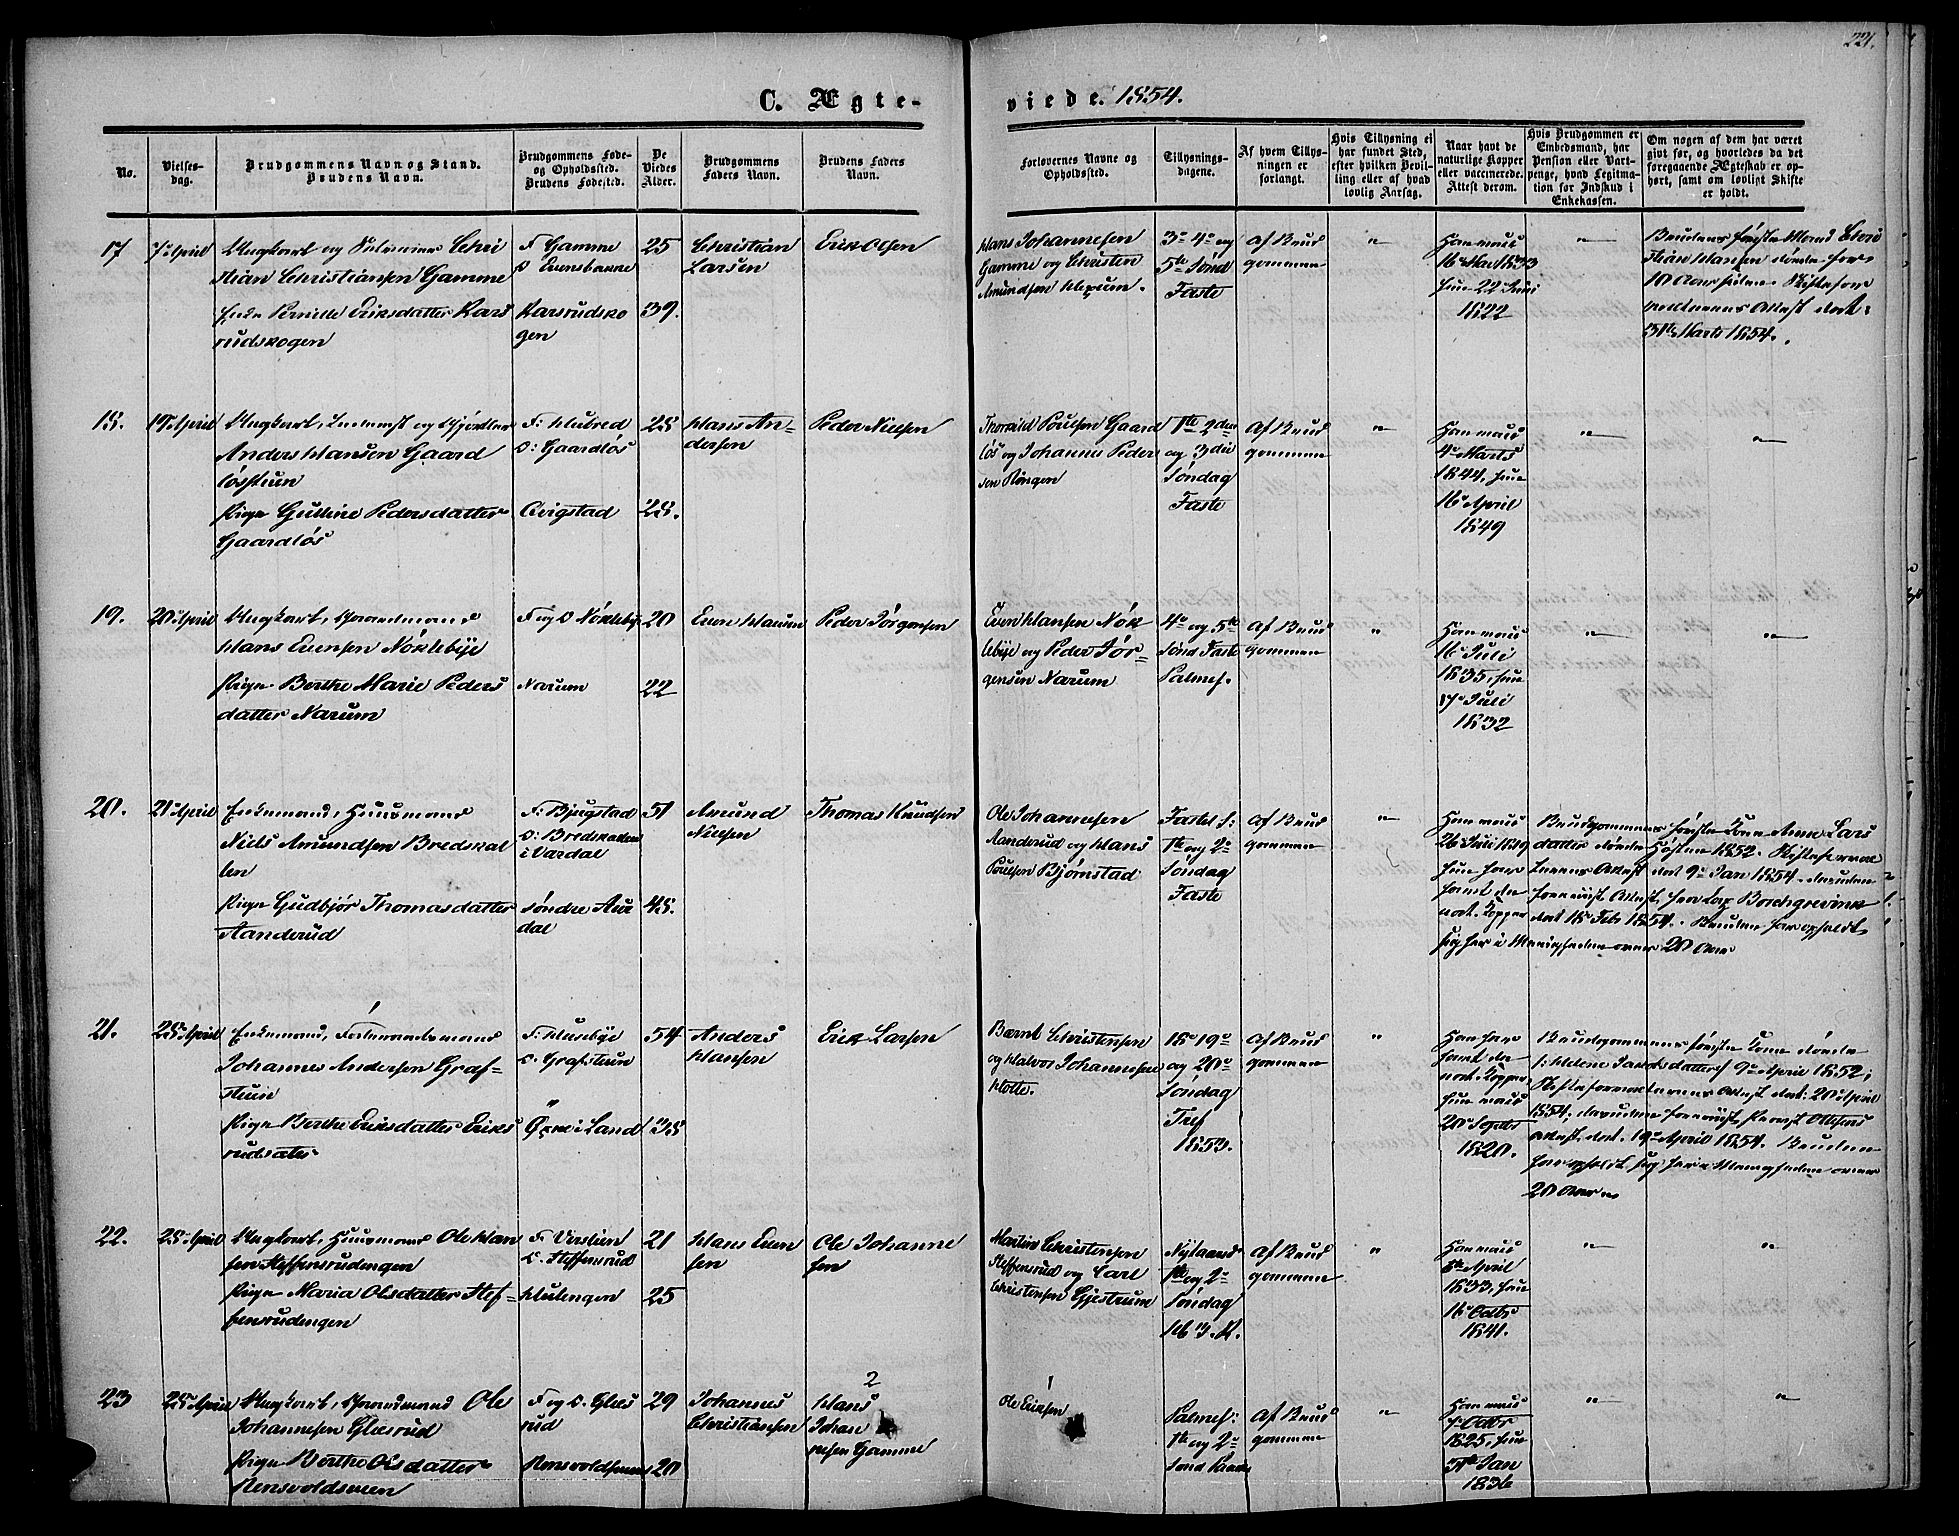 221.
C. Ægte-
viede. 1854.
No.
Vielses-
dag.
Brudgommens Navn og Stand.
Brudens Navn.
Brudgommens Føde-
og Opholdssted.
Brudens Fødested.
De
Viedes
Alder.
Brudgommens
Faders Navn.
Brudens Faders
Navn.
Forlovernes Navne og
Opholdssted.
Tillysnings-
dagene.
Af hvem Tillys-
ningen er
forlangt.
Hvis Tillysning ei
har fundet Sted,
efter hvilken Bevil-
ling eller af hvad
lovlig Aarsag.
Naar havt de
naturlige Kopper
eller vaccinerede.
Attest derom.
Hvis Brudgommen er
Embedsmand, har
Pension eller Vart-
penge, hvad Legitma-
tion for Indskud i
Enkekassen.
Om nogen af dem har været
gift før, og hvorledes da det
foregaaende Ægteskab er op-
hørt, samt om lovligt Skifte
er holdt.
17
7 April
Ungkarl og Chri
stian Christiansen Gamme
Enke Pernille Eriksdatter Kars
rudskogen
F Gamme
O Evensbakke
Karsrudsko
gen
25
39.
Christian
Larsen
Erik Olsen
Hans Johannesen
Gamme og Christen
Amundsen
3die 4de og
5te Sønd
Faste
Af Brud
gommen
"
Ham vacc
16 Mai 1833
Hun 22 Juni
1822
"
Brudens første Mand Chri
stian Hansen døde for
10 Aar siden. Skiftefor
valtnens Attest dat:
31te Marts 1854.
18.
19 April
Ungkarl,
Anders Hansen Gaard
løsstuen
Pige Guttine Pedersdatter
Gaardløs
F: Hubred
O: Gaardløs
Qvigstad
28
28.
Hans An-
dersen
Peder Nielsen
Thorvald Poulsen Gaard
løs og Johannes Peder
sen Røngen
1ste 2den
og 3die
Søndag
Faste
Af Brud
gommen
"
Ham vacc
4 Marts
1844, Hun
16 April
1849
"
"
19.
20 April
Ungkarl, Gaardmand
Hans Evensen Nøklebye
Pige Berthe Marie Peders
datter Narum
F og O Nøklebye
Narum
20
22
Even Hansen
Peder Jørgensen
Even Hansen Nøk
lebye og Peder Jør-
gensen Narum
4de og 5te
Sønd Faste
Palmes.
Af Brud
gommen
"
Ham vacc
16 Juli
1835, Hun
7 Juli
1832
"
"
20.
21 April
Enkemand, Huusmand
Niels Amundsen Bredskal
len
Pige Gudbjør Thomasdatter
Aanderud
F: Bjugstad
O: Bredskallen
i Vardal
søndre Aur
dal
51
48.
Amund
Nielsen
Thomas Knudsen
Ole Johannesen
Aanderud og Hans
Poulsen Bjørnstad
Fastel S:
1ste og 2den
Søndag
Faste
Af Brud
gommen
"
Ham vacc
26 Juli 1819
Hun har
havt de
nat. Kopper
Brudgommens første Kone Anne Lars
datter døde Høsten 1852. Skifteforval
terens Attest dat 9de Jan 1854. desuden
forevist Attest fra Cap Borchgrevink
dat 18 Febr 1854. Bruden har opholdt
sig her i Menigheden over 20 Aar
21.
25 April
Enkemand, Forligsmand
Johannes Andersen Graf-
stuen
Pige Berthe Eriksdatter Eriks
rudsæter
F: Huseby
O: Grafstuen
i Land
54
38
Anders
Hansen
Erik Larsen
Bernt Christensen
og Halvor Johannesen
18de 19de
og 20de
Søndag
Tref
1853.
Af Brud
gommen
"
Ham har
havt de
nat. Kopper
Hun vacc
20 Septbr
1820.
Brudgommens første Kone døde
Helene Jacobsdatter 9de April 1852;
Skifteforvalterens Attest dat: 20 April
1854, desuden forevist Ottesens
Attest, dat. 19 April 1854. Bruden
har opholdt sig her i Menigheden over
20 Aar
22.
25 April
Ungkarl, Huusmand Ole Han
sen Steffensrudengen
Pige Maria Olsdatter Stef-
fensrudengen
F. Versteen
O. Steffensrud
21
25
Hans Even
sen
Ole Johanne
sen
Martin Christensen
Steffensrud og Carl
Christensen Gjestrum
Nytaarsd
1ste og 2den
Søndag
H 3 K.
Af Brud
gommen
"
Ham vacc
8 April
1833, Hun
16 Octbr
1841.
"
"
23
25 April
Ungkarl, Gaardmand Ole
Johannesen Glæsrud
Pige Berthe Olsdatter
Rensvoldseien
F og O. Glæs
rud
Rensvoldseien
29
20
Johannes
Christiansen
2
Hans
Johan
nesen Gamme
1
Ole
Palmes:
1ste og 2den
Sønd Paaske
Af Brud
gommen
"
Ham vacc
7 Octbr
1825, Hun
31te Jan
1836
"
"